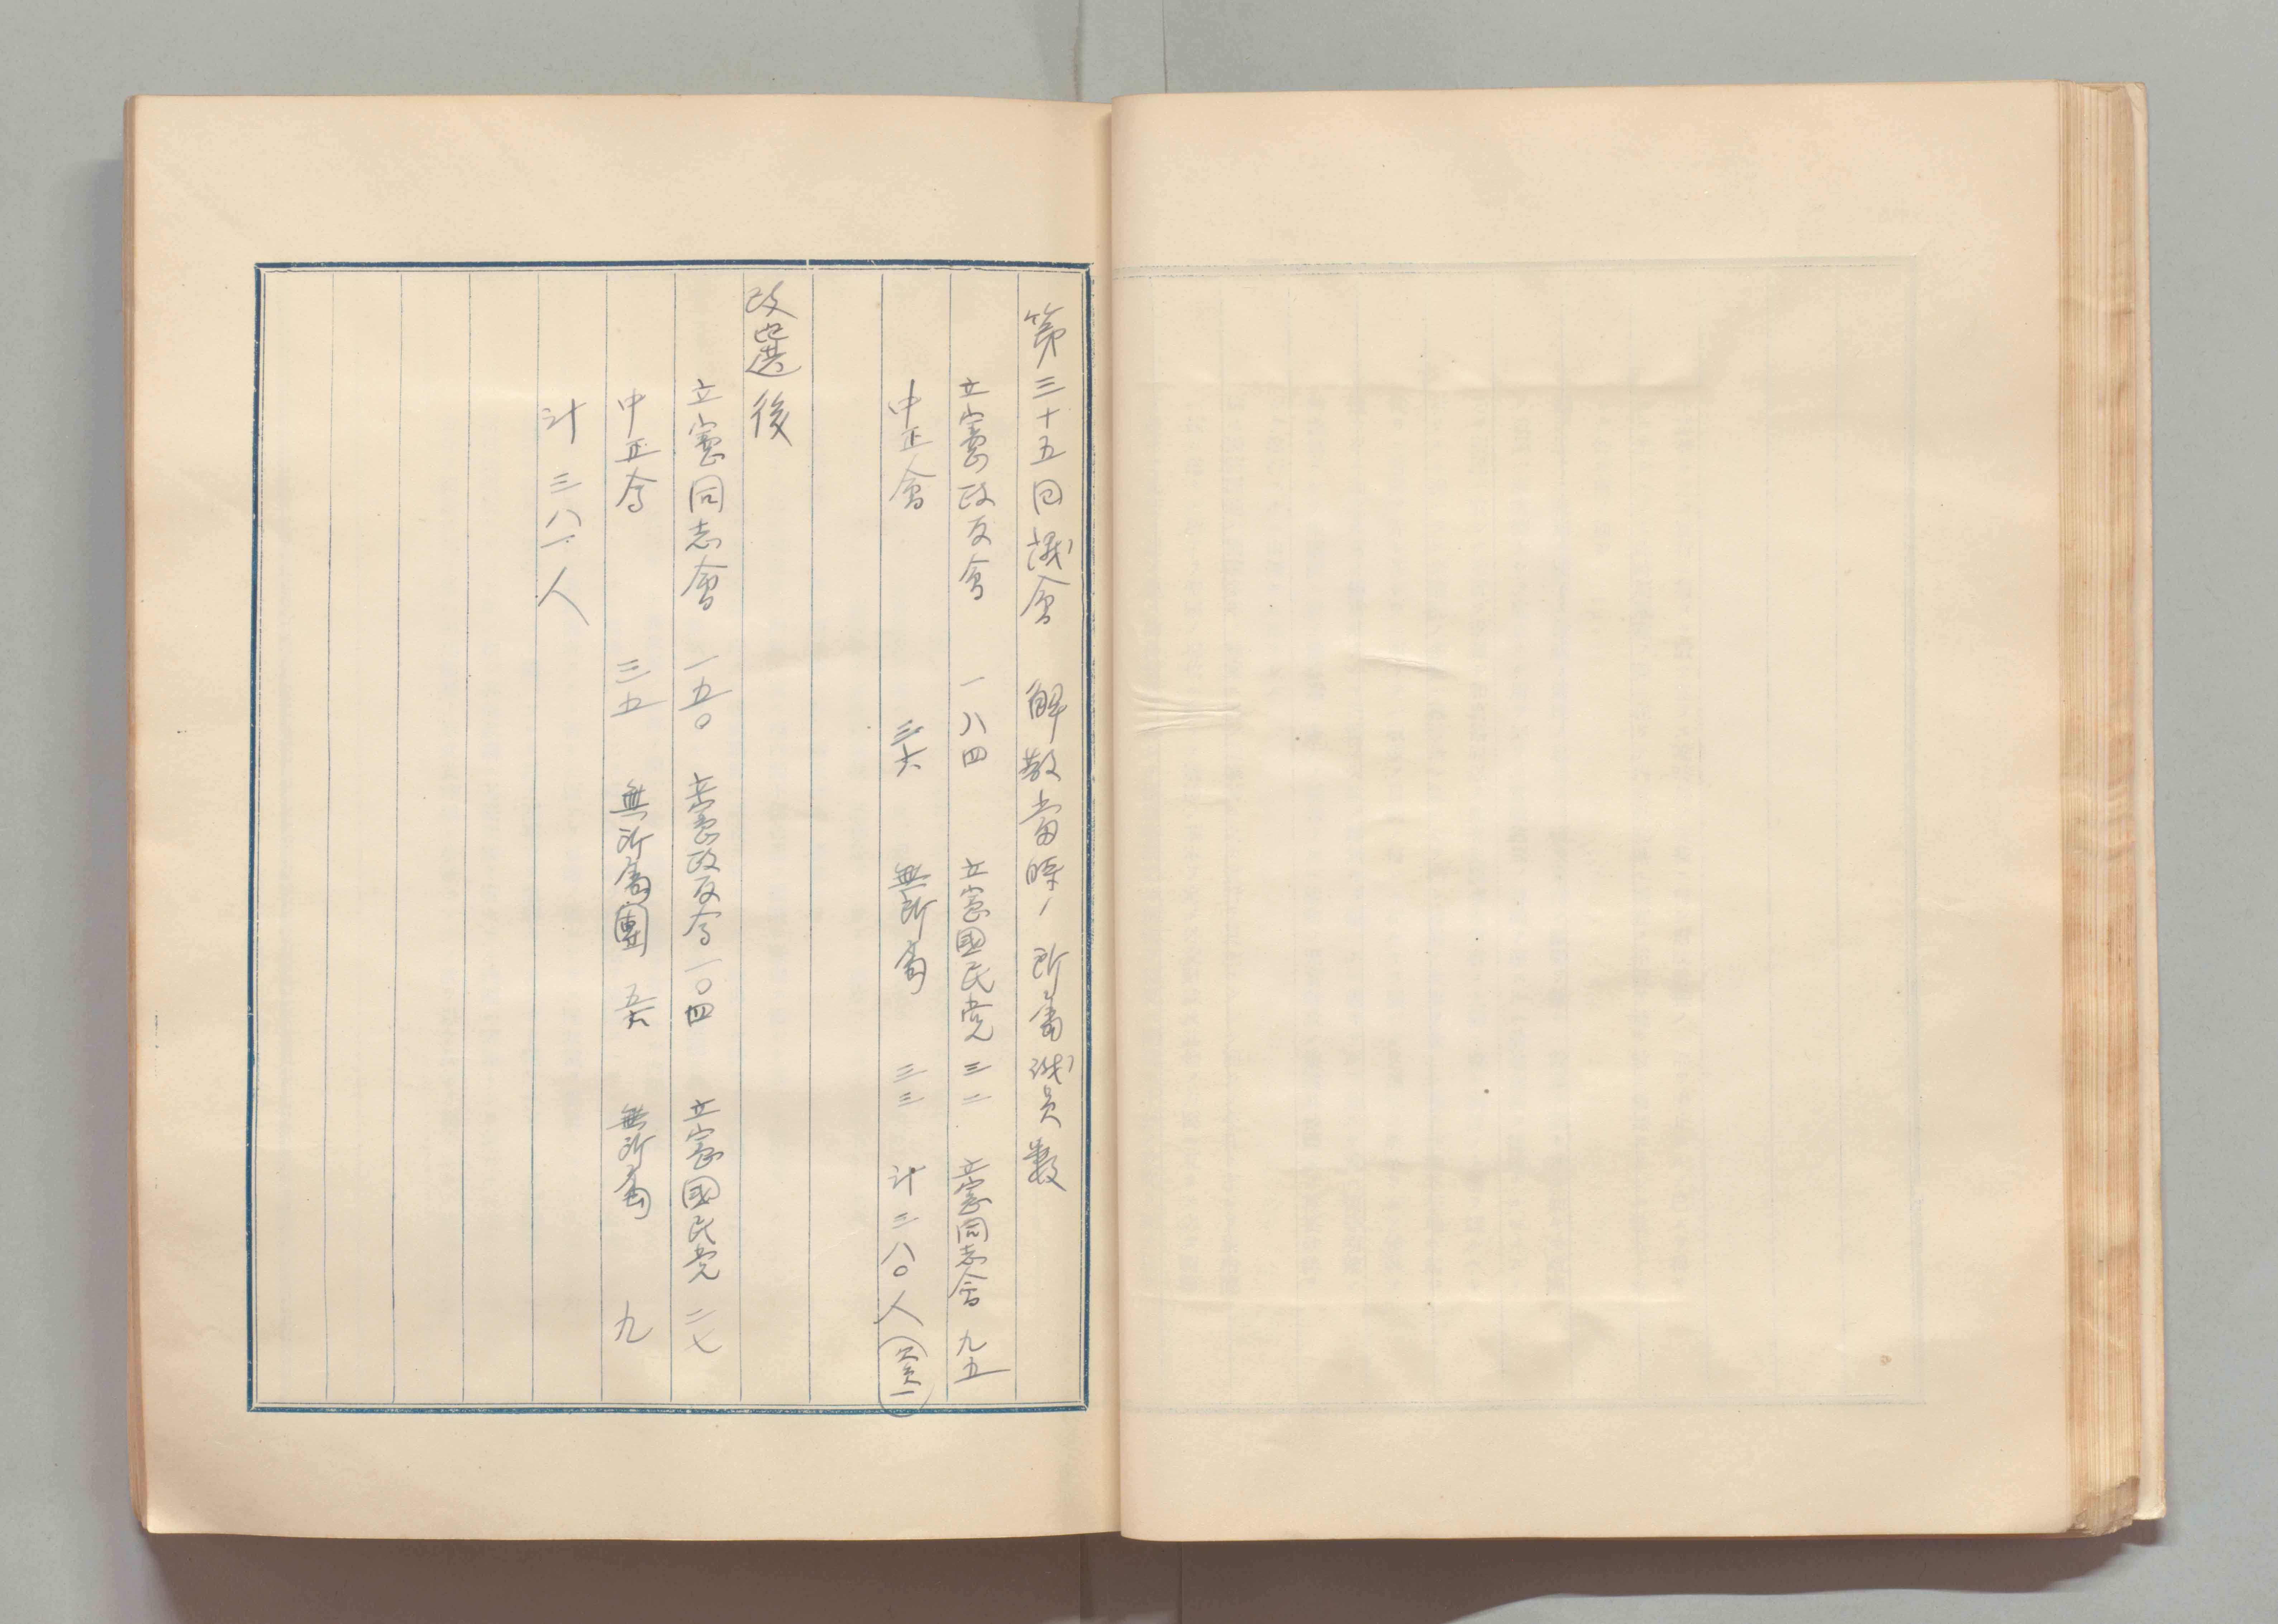 第三十五回議會　解散當時ノ所属議員数
立憲政友會　一八四　立憲國民党　三二　立憲同志会　九五
中正會　三六　無所属　三三　計三八〇人（欠員一）
改選後
立憲同志會　一五〇　立憲政友会一〇四　立憲國民党　二七
中正会　三五　無所属團　五六　無所属　九
計三八一人